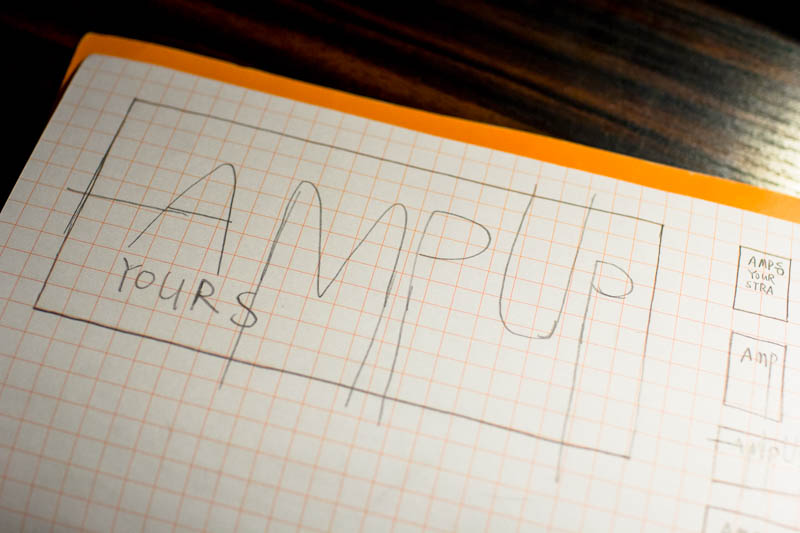 AMPUP
YOURS
AMPS
YOUR
STRA
AMP
AMPU